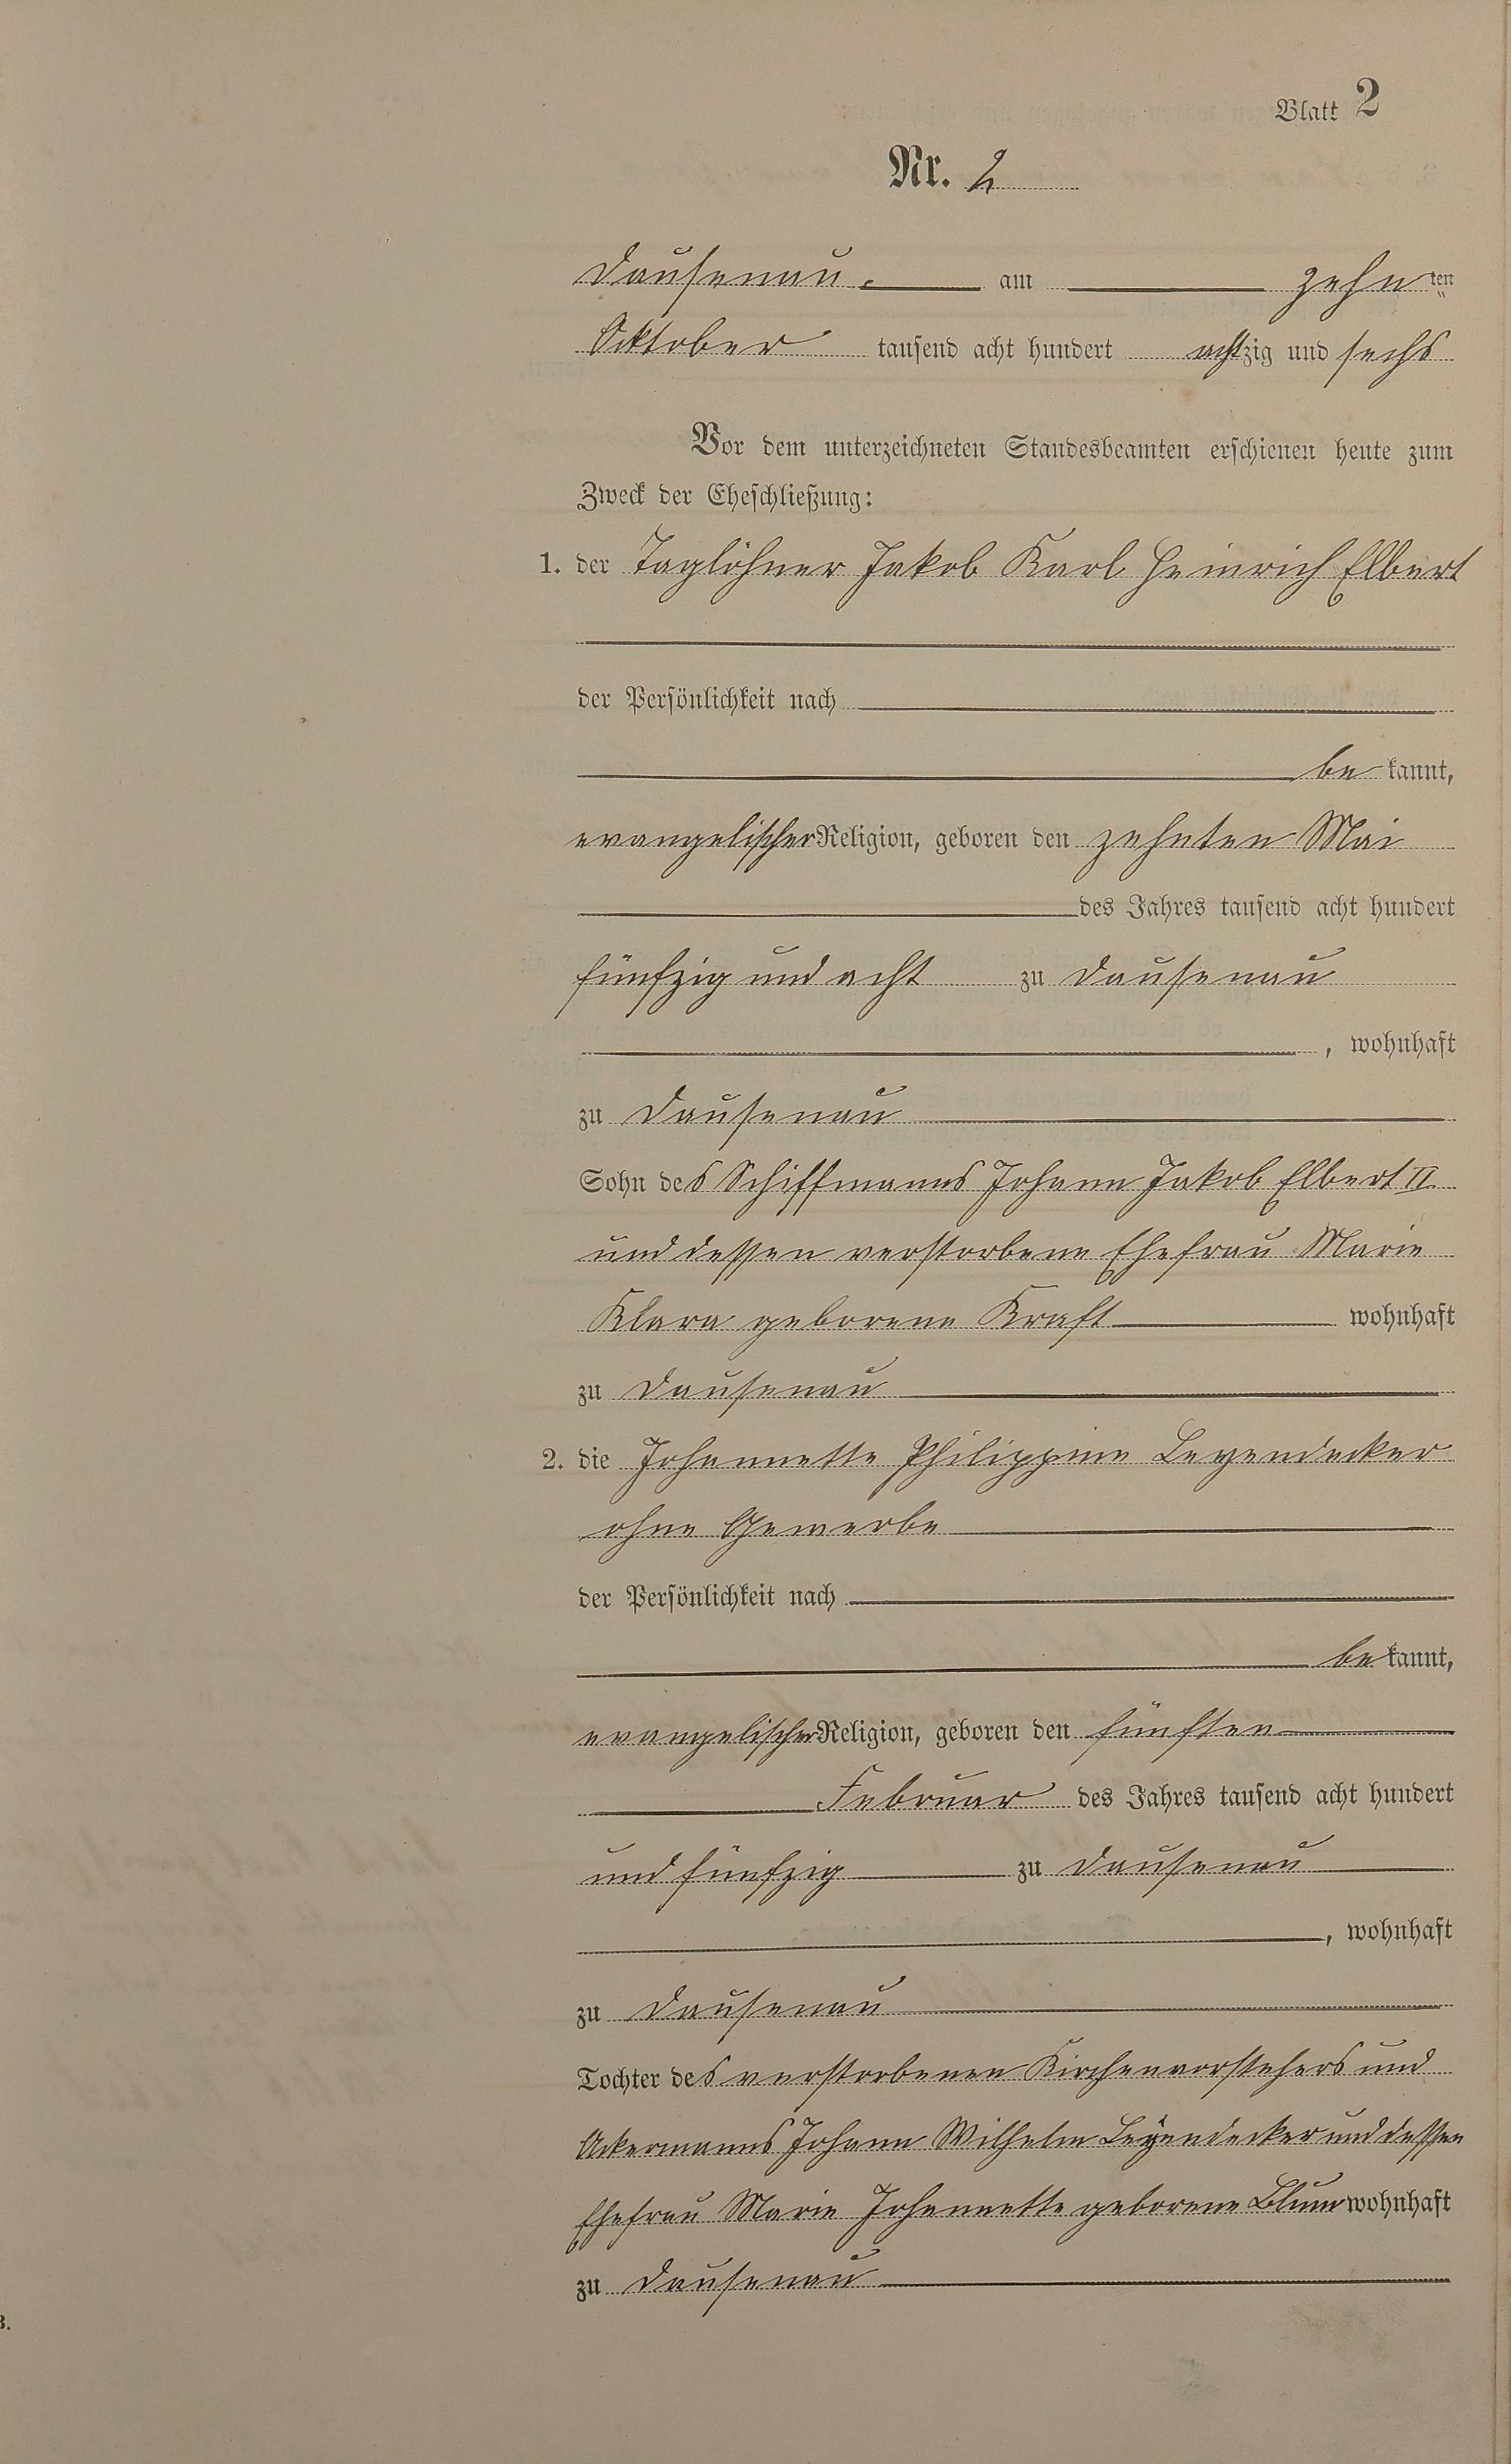 Blatt 2
Nr. 2
Dausenau. am zehnten
Oktober tausend acht hundert achtzig und sechs
Vor dem unterzeichneten Standesbeamten erschienen heute zum
Zweck der Eheschließung:
1. der Taglöhner Jakob Karl Heinrich Elbert
der Persönlichkeit nach
be kannt,
evangelischer Religion, geboren den zehnten Mai
des Jahres tausend acht hundert
fünfzig und acht zu Dausenau
, wohnhaft
zu Dausenau
Sohn des Schiffmanns Johann Jakob Elbert II
und dessen verstorbene Ehefrau Marie
Klara geborene Kraft wohnhaft
zu Dausenau
2. die Johannette Philippine Leyendecker
ohne Gewerbe
der Persönlichkeit nach
be kannt,
evangelischer Religion, geboren den fünften
Februar des Jahres tausend acht hundert
und fünfzig zu Dausenau
, wohnhaft
zu Dausenau
Tochter des verstorbenen Kirchenvorstehers und
Ackermanns Johann Wilhelm Leyendecker und dessen
Ehefrau Marie Johannette geborene Blum wohnhaft
zu Dausenau